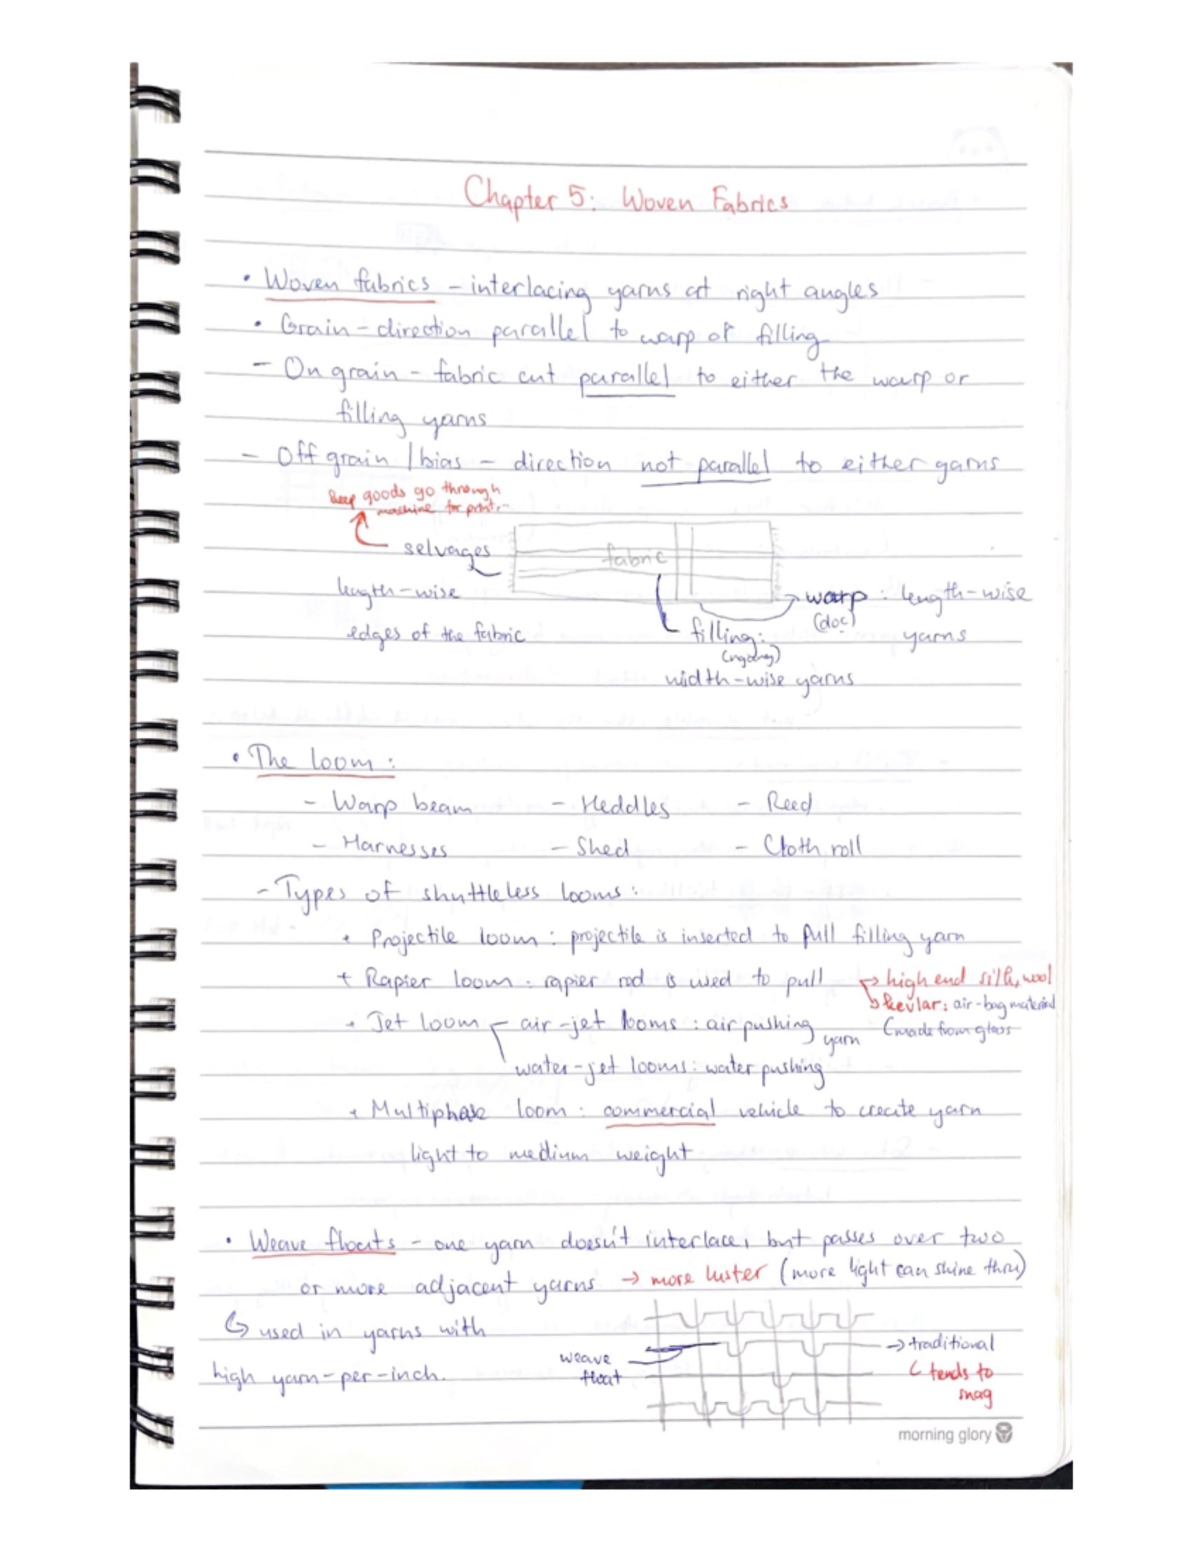 Chapter 5: Woven Fabrics
• Woven fabrics - interlacing yarns at right angles
• Grain - direction parallel to warp or filling
- On grain - fabric cut parallel to either the warp or
filling yarns
- Off grain / bias - direction not parallel to either yarns
keep goods go through
machine for print.
selvages
fabric
length-wise
edges of the fabric
warp : length-wise
(doc)
yarns
filling:
width-wise yarns
• The loom :
- Warp beam - Heddles - Reed
- Harnesses - Shed - Cloth roll
- Types of shuttleless looms :
+ Projectile loom : projectile is inserted to pull filling yarn
+ Rapier loom : rapier rod is used to pull → high end silk, wool
kevlar : air-bag material
(made from glass
+ Jet loom air-jet looms : air pushing yarn
water-jet looms : water pushing
+ Multiphase loom : commercial vehicle to create yarn
light to medium weight
• Weave floats - one yarn doesn't interlace, but passes over two
or more adjacent yarns → more luster (more light can shine thru)
used in yarns with
high yarn-per-inch.
weave
float
→ traditional
tends to
snag
morning glory